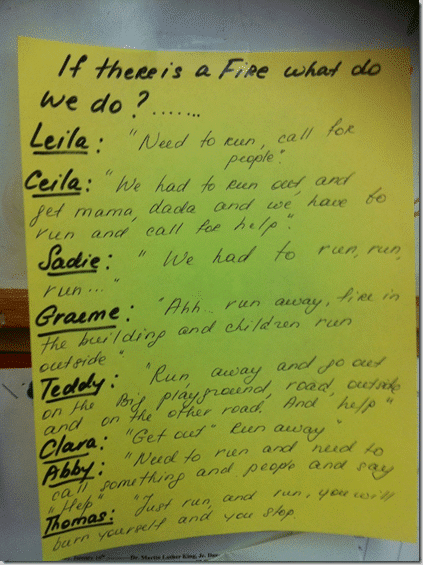 If there is a Fire what do
we do?.......
Leila: "Need to run, call for
people".
Ceila: "We had to run out, and
get mama, dada and we have to
run and call for help".
Sadie: " We had to run, run,
run..."
Graeme: "Ahh.. run away, fire in
the building and children run
outside"
Teddy: "Run away and go out
on the Big playground, road, outside
and on the other road. And help"
Clara: "Get out" Run away"
Abby: "Need to run and need to
call something and people and say
"Help"
Thomas: "Just run, and run, you will
burn yourself and you stop.
Dr. Martin Luther King, Jr. Day